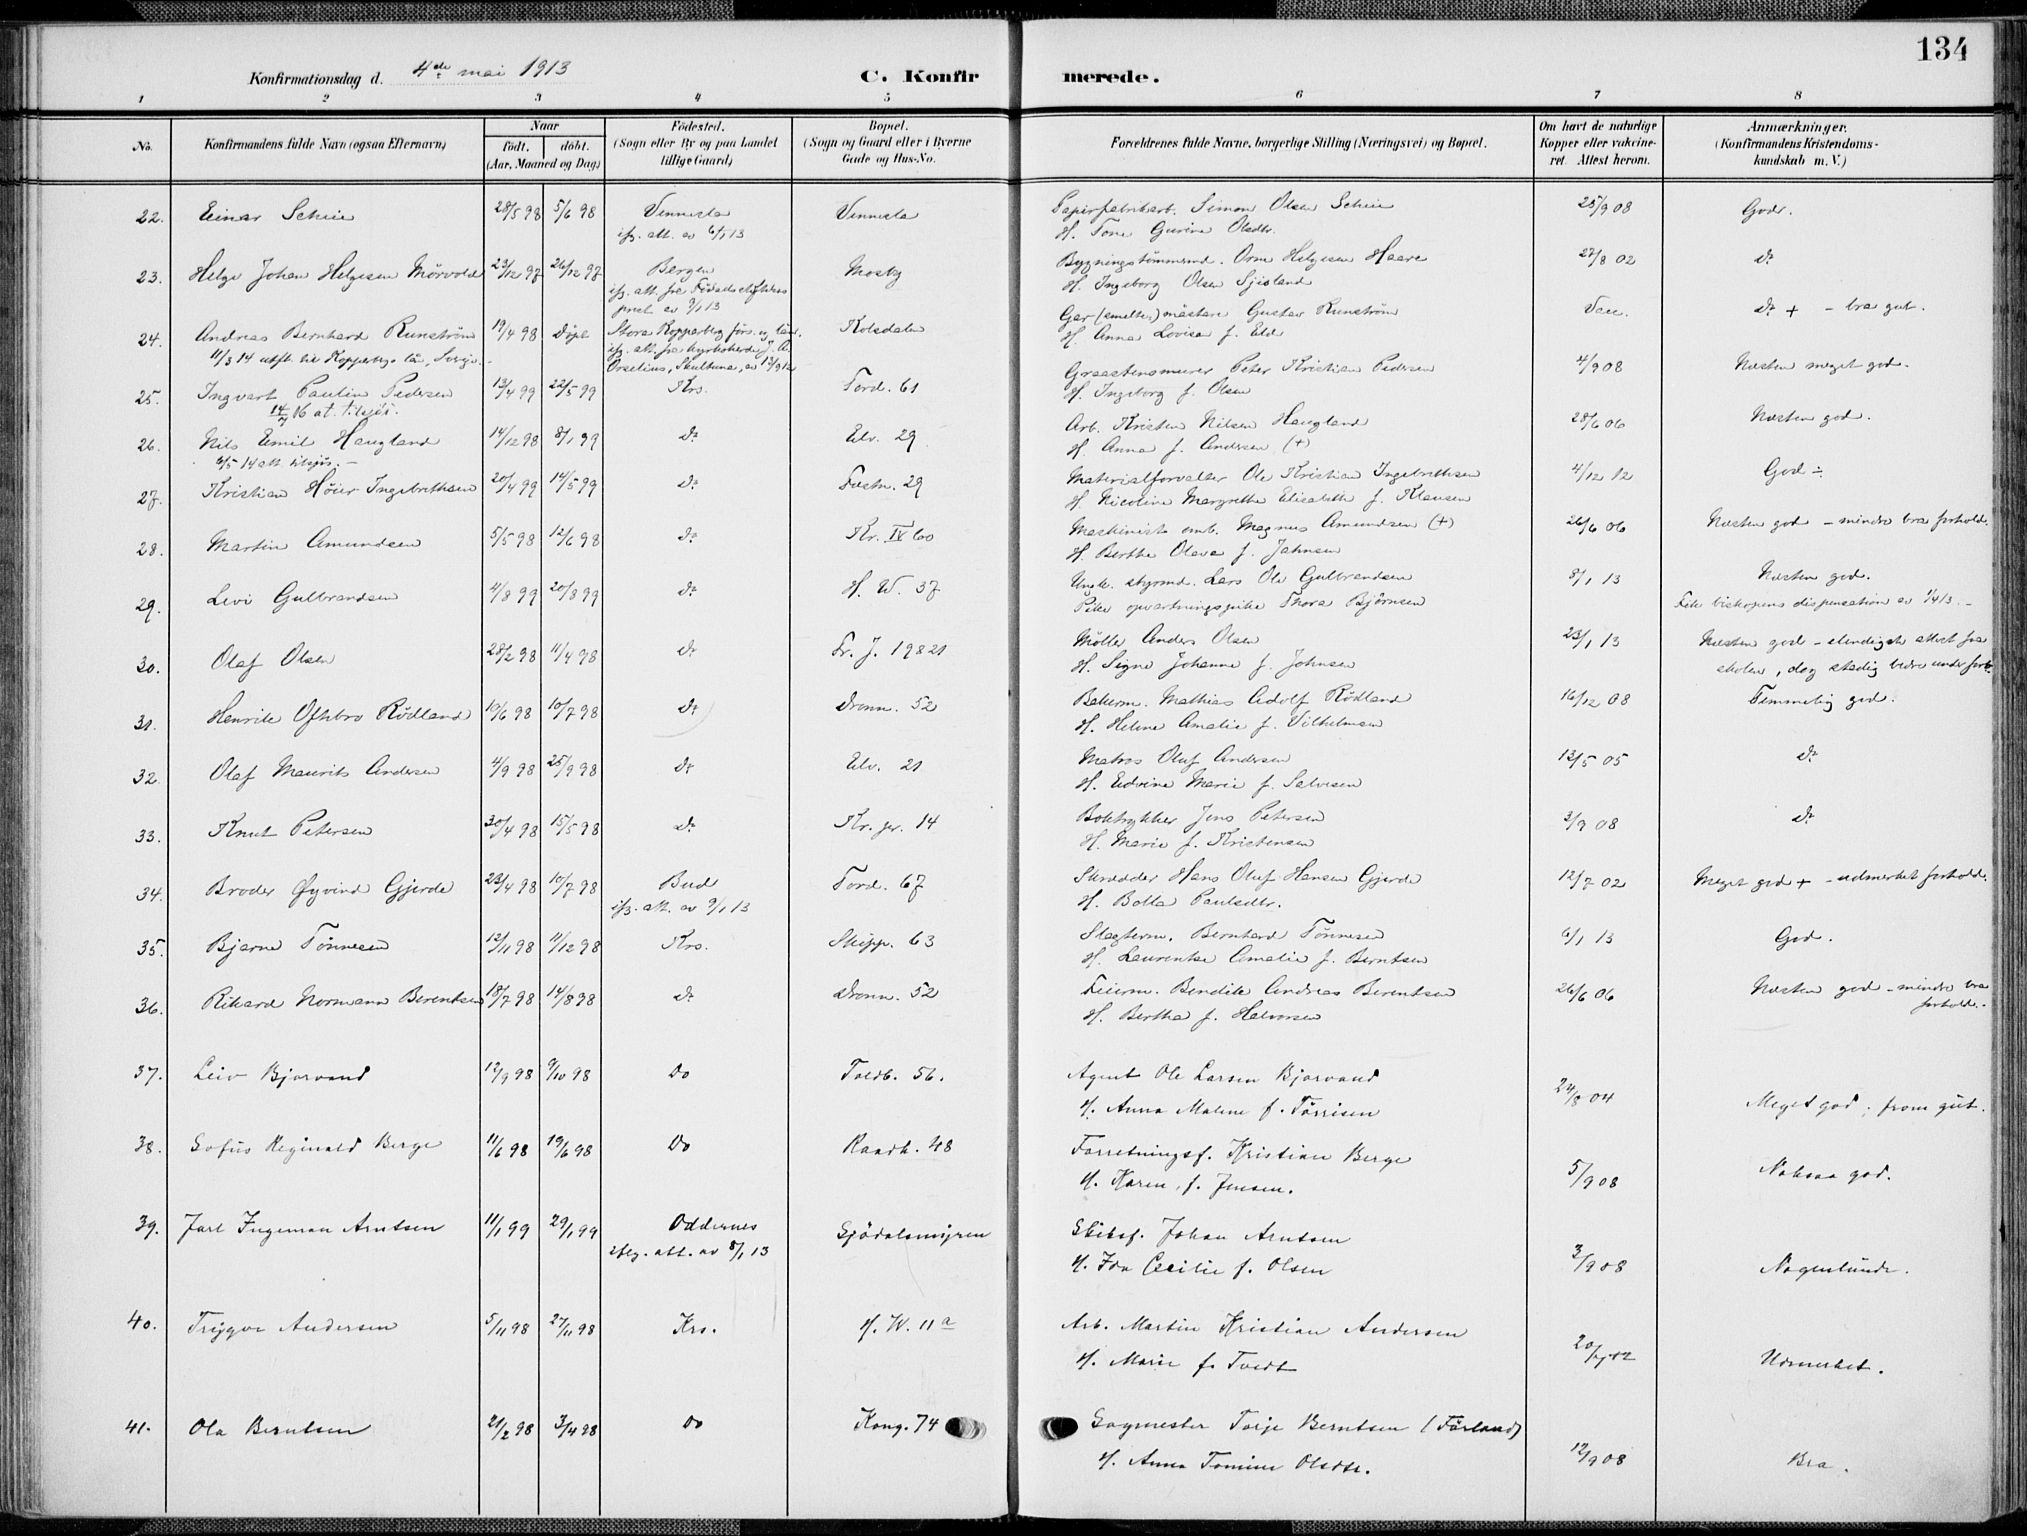 134
Konfirmationsdag d. 4de mai 1913
C. Konfirmerede.
1 2 3 4 5 6 7 8
No.
Konfirmandens fulde Navn (ogsaa Efternavn)
Naar
født. døbt.
(Aar, Maaned og Dag)
Fødested.
(Sogn eller By og paa Landet
tillige Gaard)
Bopæl.
(Sogn og Gaard eller i Byerne
Gade og Hus-No.
Forældrenes fulde Navne, borgerlige Stilling (Næringsvei) og Bopæl.
Om havt de naturlige
Kopper eller vakcine-
ret. Attest herom.
Anmærkninger.
(Konfirmandens Kristendoms-
kundskab m. V.)
22. Einar Scheie 28/5 98 5/6 98 Vennesla Vennesla Papirfabrikarb. Simon Olsen Scheie 25/9 08 Godt.
ifg. att. av 6/1 13 H. Tone Gurine Olsdtr.
23. Helge Johan Helgesen Mørvold 23/12 97 26/12 97 Bergen Mosby Bygningstømmermd. Orm Helgesen Haare 27/8 02 do
ifg. att. fra Fødselsstiftelsens H. Ingeborg Olsen
prest av 9/1 13
24. Andreas Bernhard Runström 19/4 98 Stora Kopparberg förs. og län. Kolsdalen Gar (smelter) mästare Gustav Runström Vacc. do + - bra gut.
11/3 14 utft. til Kopparbergs län, Sverge. ifg. att. fra kyrkoherde J. A. H. Anna Lovisa f. Eld
Orselius, Skultuna, av 13/9 12
25. Ingvart Paulin Pedersen 13/4 99 22/5 99 Krs. Tord. 61 Graastensmurer Peter Kristian Pedersen 4/9 08 Næsten meget god.
14/7 16 at. tilsjøs. H. Ingeborg f. Olsen
26. Nils Emil Haugland 14/12 98 8/1 99 do Elv. 29 Arb. Kristen Nilsen Haugland 28/6 06 Næsten god.
6/5 14 att. tilsjøs. - H. Anna f. Andersen (+)
27. Kristian Høier Ingebrethsen 20/4 99 14/5 99 do Festn. 29 Materialforvalter Ole Kristian Ingebrethsen 4/12 12 God ÷
H. Nicoline Margrethe Elisabeth f. Klausen
28. Martin Amundsen 5/5 98 12/6 98 do Kr. IV 60 Maskinist emb. Magnus Amundsen (+) 26/6 06 Næsten god - mindre bra forhold.
H. Berthe Oleve f. Jahnsen
29. Levi Gulbrandsen 4/8 99 20/8 99 do H. W. 37 Ungk. styrmd. Lars Ole Gulbrandsen 8/1 13 Næsten god.
Pike opvartningspike Thora Bjørnsen Fik biskopens dispensation av 1/4 13. -
30. Olaf Olsen 28/2 98 11/4 98 do Fr. J. 19 & 21 Møller Anders Olsen 23/1 13 Næsten god - elendigste attest fra
H. Signe Johanne f. Johnsen skolen, dog stadig bedre under forb.
31. Henrik Oftebro Rødland 10/6 98 10/7 98 do Dronn. 52 Bakerm. Mathias Adolf Rødland 16/12 08 Temmelig god.
H. Helene Amalie f. Vilhelmsen
32. Olaf Maurits Andersen 4/9 98 25/9 98 do Elv. 21 Matros Oluf Andersen 13/5 05 do
H. Edvine Marie f. Salvesen
33. Knut Petersen 30/4 98 15/5 98 do Kr. gr. 14 Boktrykker Jens Petersen 3/9 08 do
H. Marie f. Kristensen
34. Broder Øyvind Gjerde 23/4 98 10/7 98 Bud Tord. 67 Skrædder Hans Oluf Hansen Gjerde 12/7 02 Meget god + - udmerket forhold.
ifg. att. av 9/1 13 H. Bolla Paulsdtr.
35. Bjarne Tønnesen 12/11 98 11/12 98 Krs. Skipp. 63 Slagterm. Bernhard Tønnesen 6/1 13 God.
H. Laurentse Amalie f. Berntsen
36. Rikard Normann Berentsen 18/7 98 14/8 98 do Dronn. 52 Feierm. Bendik Andreas Berentsen 26/6 06 Næsten god - mindre bra
H. Bertha f. Halvorsen forhold. -
37. Leiv Bjorvand 12/9 98 9/10 98 Do Toldb. 56. Agent Ole Larsen Bjorvand 24/8 04 Meget god, from gut.
H. Anna Malene f. Tørrisen
38. Sofus Reginald Berge 11/6 98 19/6 98 Do Raadh. 48 Forretningsf. Kristian Berge 5/9 08 Noksaa god.
H. Karen, f. Jensen.
39. Jarl Ingeman Arntsen 11/1 99 29/1 99 Oddernes Gjødalsmyren Skibsf. Johan Arntsen 3/9 08 Nogenlunde.
ifølg. att. av 8/1 13 H. Ida Cecilie f. Olsen
40. Trygve Andersen 5/11 98 27/11 98 Krs. H. W. 11a Arb. Martin Kristian Andersen Udmerket.
H. Marie f. Tvedt
41. Ola Berntsen 21/2 98 3/4 98 Do Kong. 74 Sagmester Torje Berntsen (Førland) 12/9 08 Bra.
H. Anna Tomine Olsdtr.